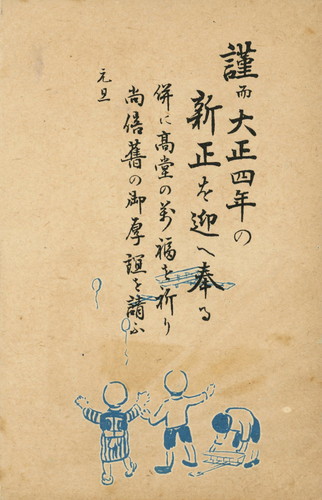 謹而大正四年の
新正を迎へ奉る
併に高堂の萬福を祈り
尚倍舊の御厚誼を請ふ
元旦